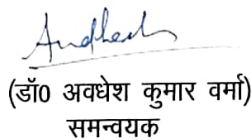 Awdhesh
(डॉ0 अवधेश कुमार वर्मा)
समन्वयक